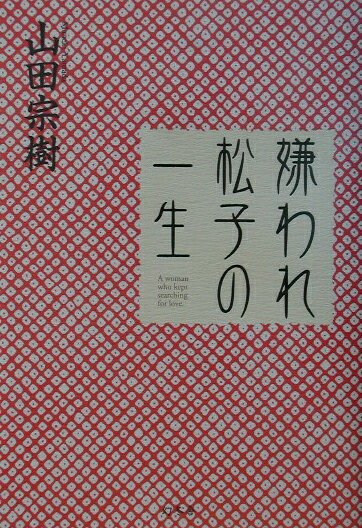 山田宗樹
嫌われ
松子の
一生
A woman
who kept
searching
for love.
幻冬舎